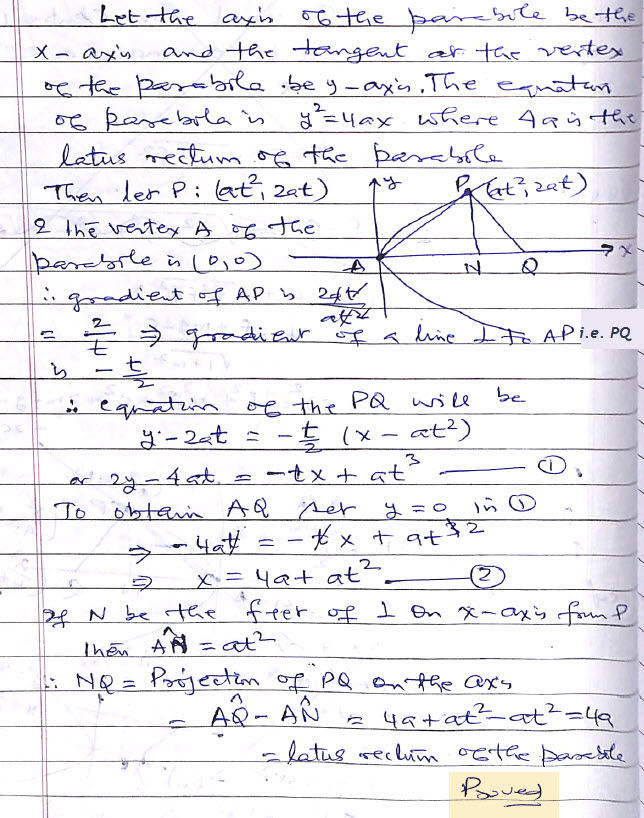 Let the axis of the parabola be the
x-axis and the tangent at the vertex
of the parabola be y-axis. The equation
of parabola is y²=4ax where 4a is the
latus rectum of the parabola
Then let P: (at², 2at)
& the vertex A of the
parabola is (0,0)
y
P (at², 2at)
A
N
Q
x
∴ gradient of AP is 2at/at²
= 2/t ⇒ gradient of a line ⊥ to AP i.e. PQ
is - t/2
∴ equation of the PQ will be
y - 2at = - t/2 (x - at²)
or 2y - 4at = -tx + at³ — ①.
To obtain AQ set y=0 in ①
⇒ - 4at = -tx + at³ 2
⇒ x = 4a + at² — ②
If N be the feet of ⊥ on x-axis from P
then AN = at²
∴ NQ = Projection of PQ on the axis
= AQ - AN = 4a+at²-at² = 4a
= latus rectum of the parabola
Proved